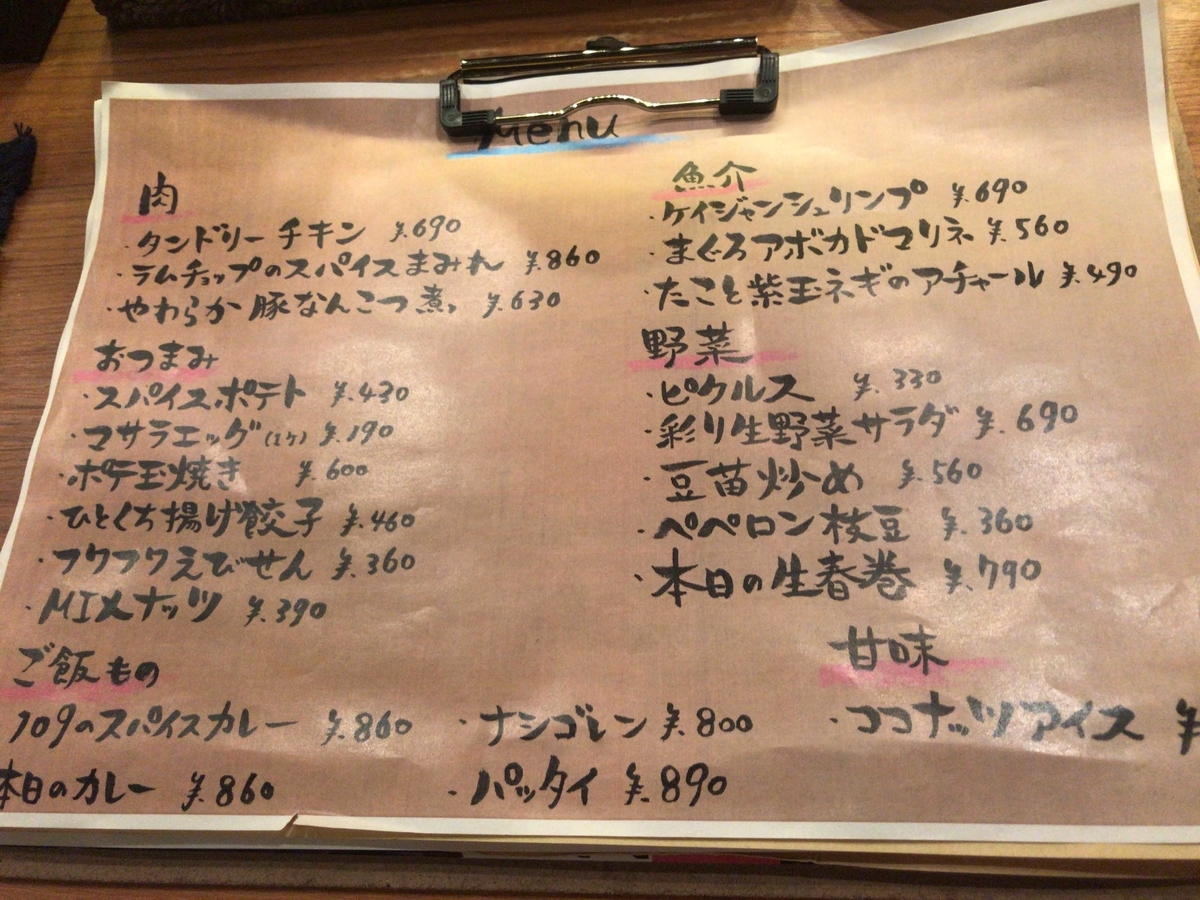 Menu
肉
・タンドリーチキン ¥.690
・ラムチョップのスパイスまみれ ¥.860
・やわらか豚なんこつ煮。 ¥.630
おつまみ
・スパイスポテト ¥.430
・マサラエッグ(1ケ) ¥.190
・ポテ玉焼き ¥.600
・ひとくち揚げ餃子 ¥.460
・フワフワえびせん ¥.360
・MIXナッツ ¥.390
ご飯もの
109のスパイスカレー ¥.860
本日のカレー ¥.860
・ナシゴレン ¥.800
・パッタイ ¥.890
魚介
・ケイジャンシュリンプ ¥.690
・まぐろアボカドマリネ ¥.560
・たこと紫玉ネギのアチャール ¥.490
野菜
・ピクルス ¥.330
・彩り生野菜サラダ ¥.690
・豆苗炒め ¥.560
・ペペロン枝豆 ¥.360
・本日の生春巻 ¥.790
甘味
・ココナッツアイス ¥